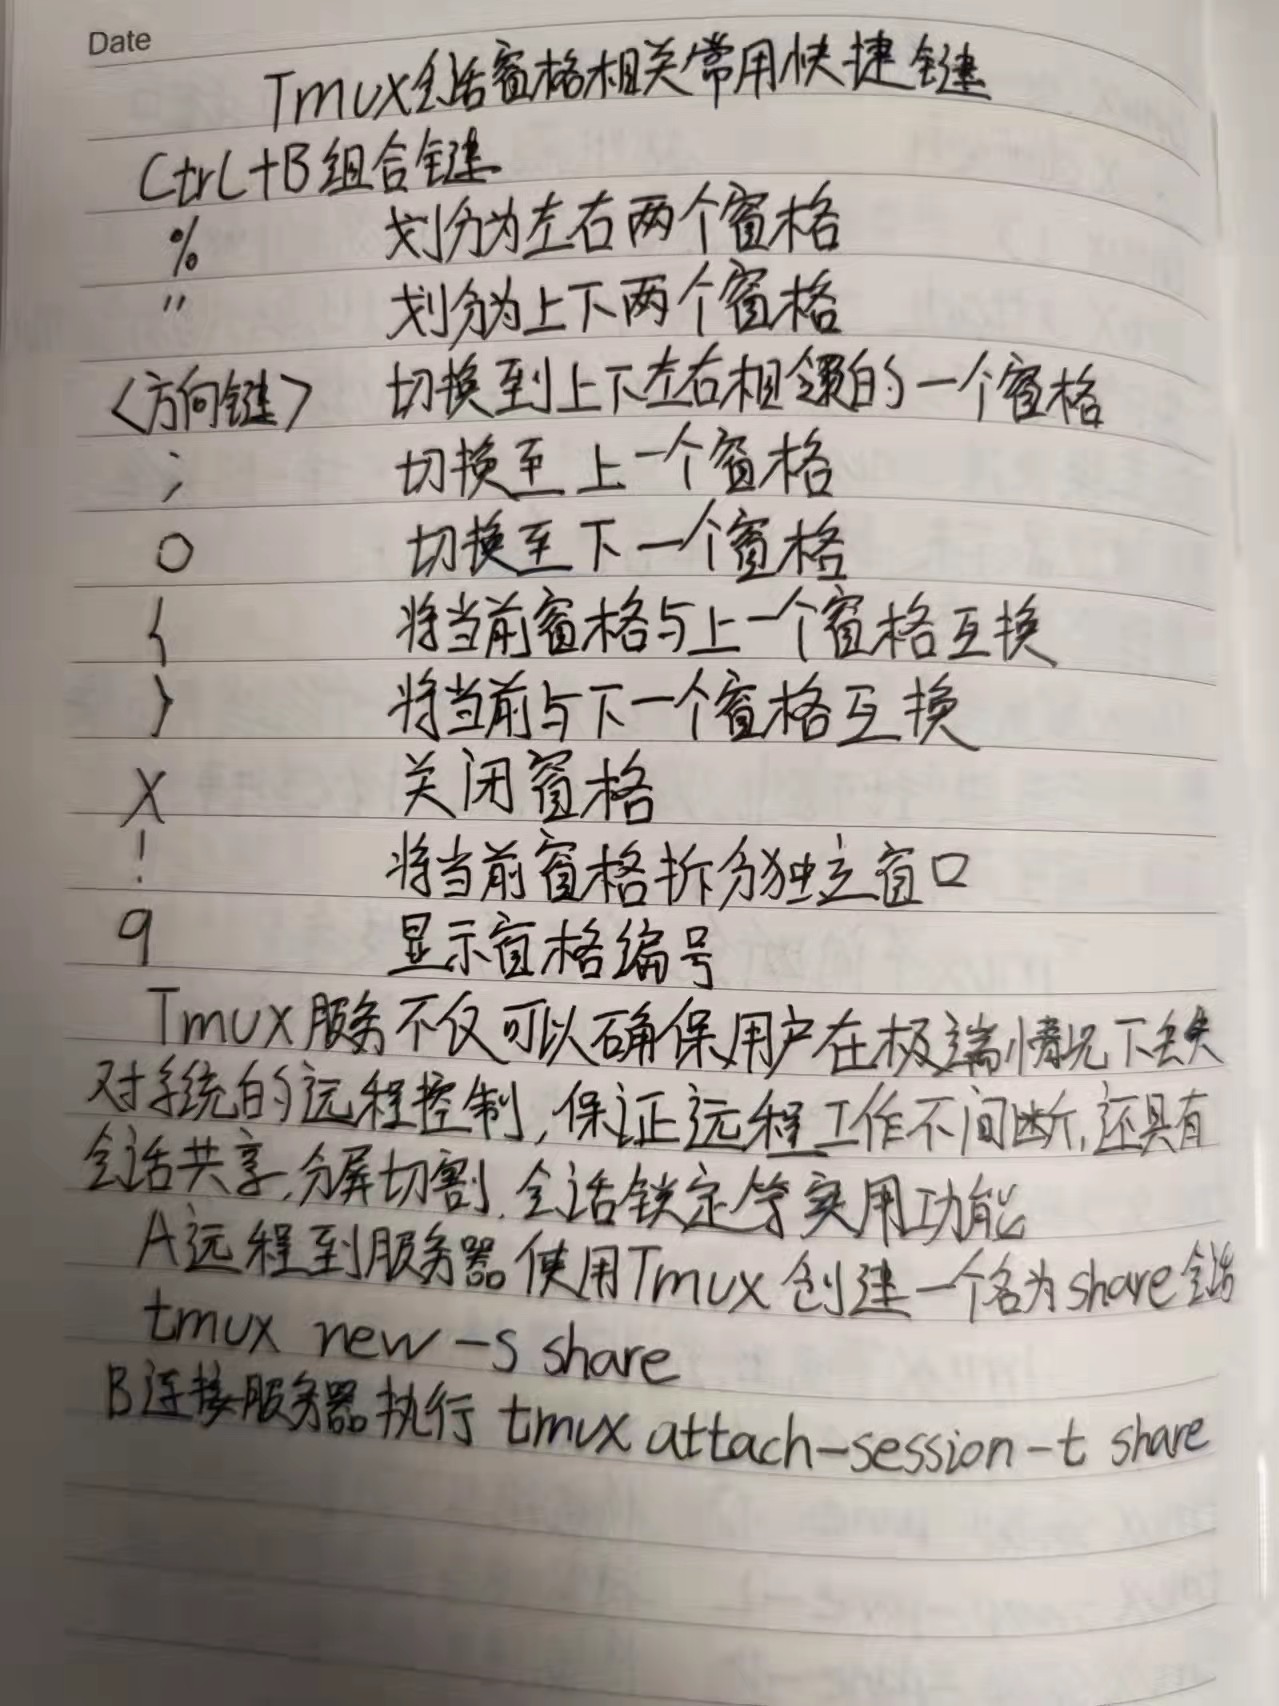 Date
Tmux会话窗格相关常用快捷键
Ctrl+B组合键
% 划分为左右两个窗格
" 划分为上下两个窗格
<方向键> 切换到上下左右相邻的一个窗格
; 切换至上一个窗格
O 切换至下一个窗格
{ 将当前窗格与上一个窗格互换
} 将当前与下一个窗格互换
X 关闭窗格
! 将当前窗格拆分独立窗口
q 显示窗格编号
Tmux服务不仅可以确保用户在极端情况下丢失
对系统的远程控制,保证远程工作不间断,还具有
会话共享,分屏切割,会话锁定等实用功能
A远程到服务器使用Tmux创建一个名为share会话
tmux new -s share
B连接服务器执行 tmux attach-session -t share